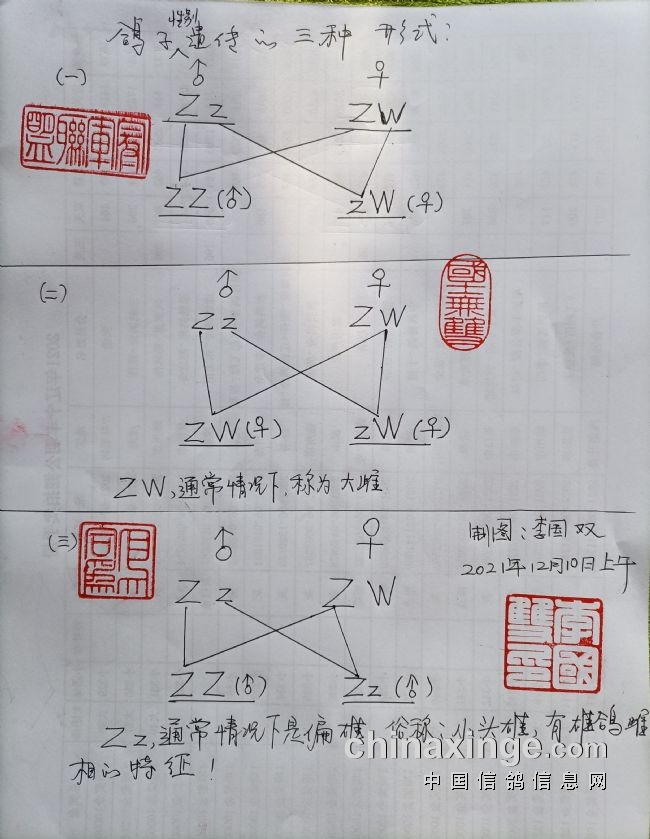 鸽子性别遗传的三种形式:
(一)
♂ ♀
Zz ZW
ZZ(♂) zW(♀)
(二)
♂ ♀
Zz ZW
ZW(♀) zW(♀)
ZW,通常情况下,称为大雌
(三)
♂ ♀
制图:李国双
2021年12月10日上午
Zz ZW
ZZ(♂) Zz(♂)
李國雙印
國士無雙
Zz,通常情况下是偏雄,俗称:小头雄,有雄鸽雌
相的特征!
chinaxinge.com
中国信鸽信息网